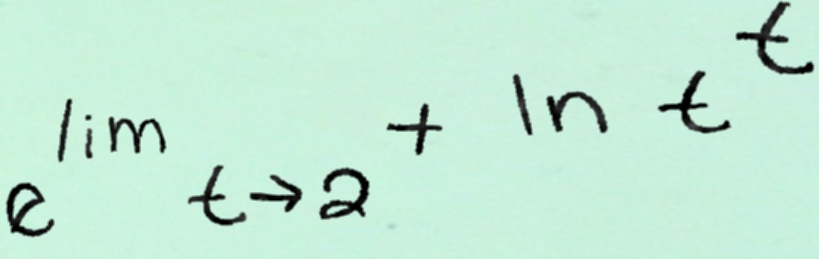 e^{\lim_{t \to 2} + \ln t^t}